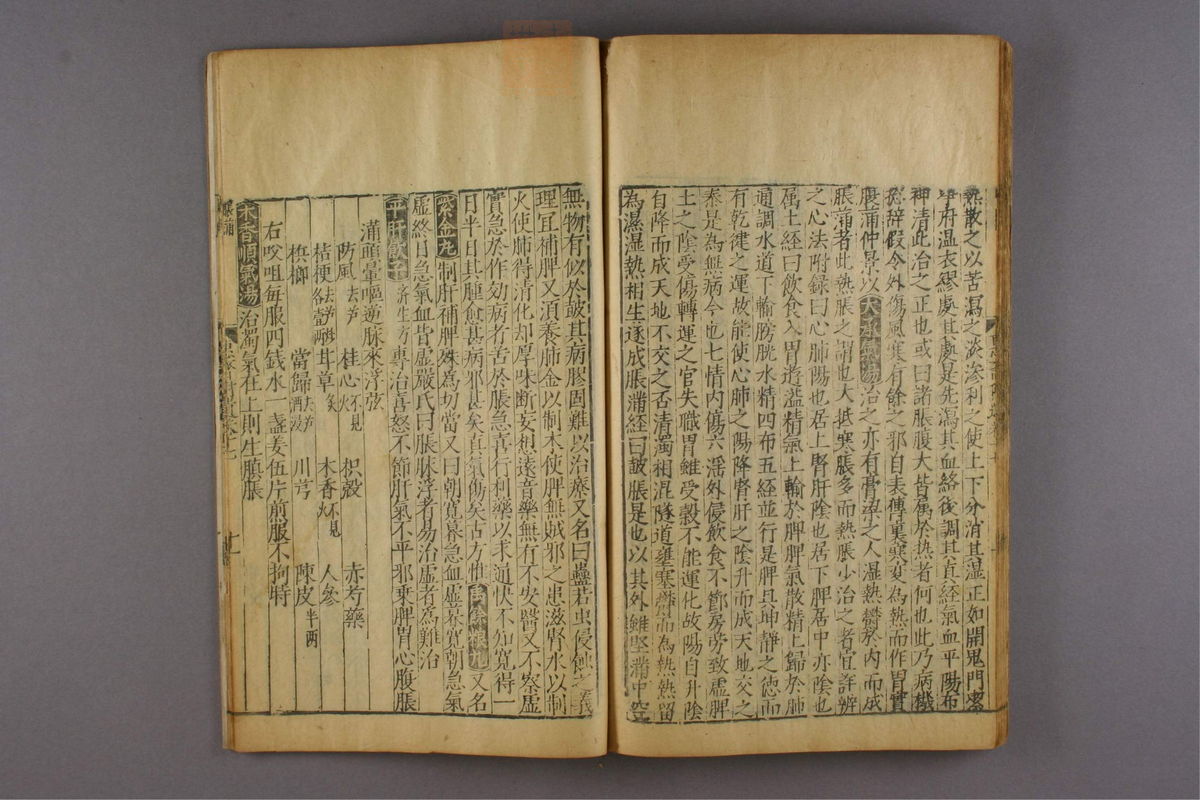 熱散之以苦瀉之淡滲利之使上下分消其濕正如開鬼門潔
淨府温衣繆處其處是先瀉其血絡後調其真經氣血平陽布
神清此治之正也或曰諸脹腹大皆属於热者何也此乃病機
總辞假令外傷風寒有餘之邪自表傳裏寒変為熱而作胃實
腹滿仲景以大承氣湯治之亦有膏粱之人湿熱欝於内而成
脹滿者此熱脹之謂也大抵寒脹多而熱脹少治之者宜詳辨
之心法附録曰心肺陽也居上腎肝陰也居下脾居中亦陰也
属土經曰飲食入胃遊溢精氣上輸於脾脾氣散精上歸於肺
通調水道下輸膀胱水精四布五經並行是脾具坤静之徳而
有乾健之運故能使心肺之陽降腎肝之陰升而成天地交之
泰是為無病今也七情内傷六滛外侵飲食不節房勞致虚脾
土之陰受傷轉運之官失職胃雖受穀不能運化故陽自升陰
自降而成天地不交之否清濁相混隧道壅塞欝而為熱熱留
為濕濕熱相生遂成脹滿經曰皷脹是也以其外雖堅滿中空
無物有似於皷其病膠固難以治療又名曰蠱若虫侵蝕之義
理宜補脾又湏養肺金以制木使脾無賊邪之患滋腎水以制
火使肺得清化却厚味断妄想遠音藥無有不安醫又不察虚
實急於作効病者苦於脹急喜行利藥以求通快不知寛得一
日半日其腫愈甚病邪甚矣真氣傷矣古方惟禹餘粮丸又名
紫金丸制肝補脾殊為切當又曰朝寛暮急血虚暮寛朝急氣
虚終日急氣血皆虚嚴氏曰脹脉浮者易治虚者為難治
平肝飲子済生方專治喜怒不節肝氣不平邪乗脾胃心腹脹
滿頭暈嘔逆脉來浮弦
防風去芦 桂心不見火 枳殼 赤芍藥
桔梗去芦各壹兩 甘草炙 木香不見火 人參
梹榔 當歸去芦酒浸 川芎 陳皮半兩
右㕮咀毎服四錢水一盞姜伍片煎服不拘時
木香順氣湯治濁氣在上則生䐜脹